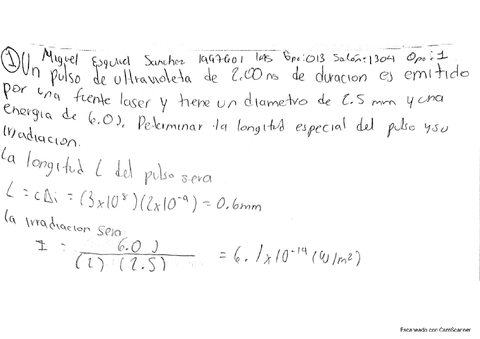 Miguel Esquiel Sanchez 1997601 IAS Gpo:013 Salón:1304 Opo:1
① Un pulso de ultravioleta de 2.00 ns de duracion es emitido
por una fuente laser y tiene un diametro de 2.5 mm y una
energia de 6.0 J. Determinar la longitud especial del pulso y su
Irradiacion.
La longitud L del pulso sera
L = cΔi = (3x10⁸)(2x10⁻⁹) = 0.6mm
la irradiacion sera
I = 6.0 J / (1) (2.5) = 6.1x10⁻¹⁹ (W/m²)
Escaneado con CamScanner